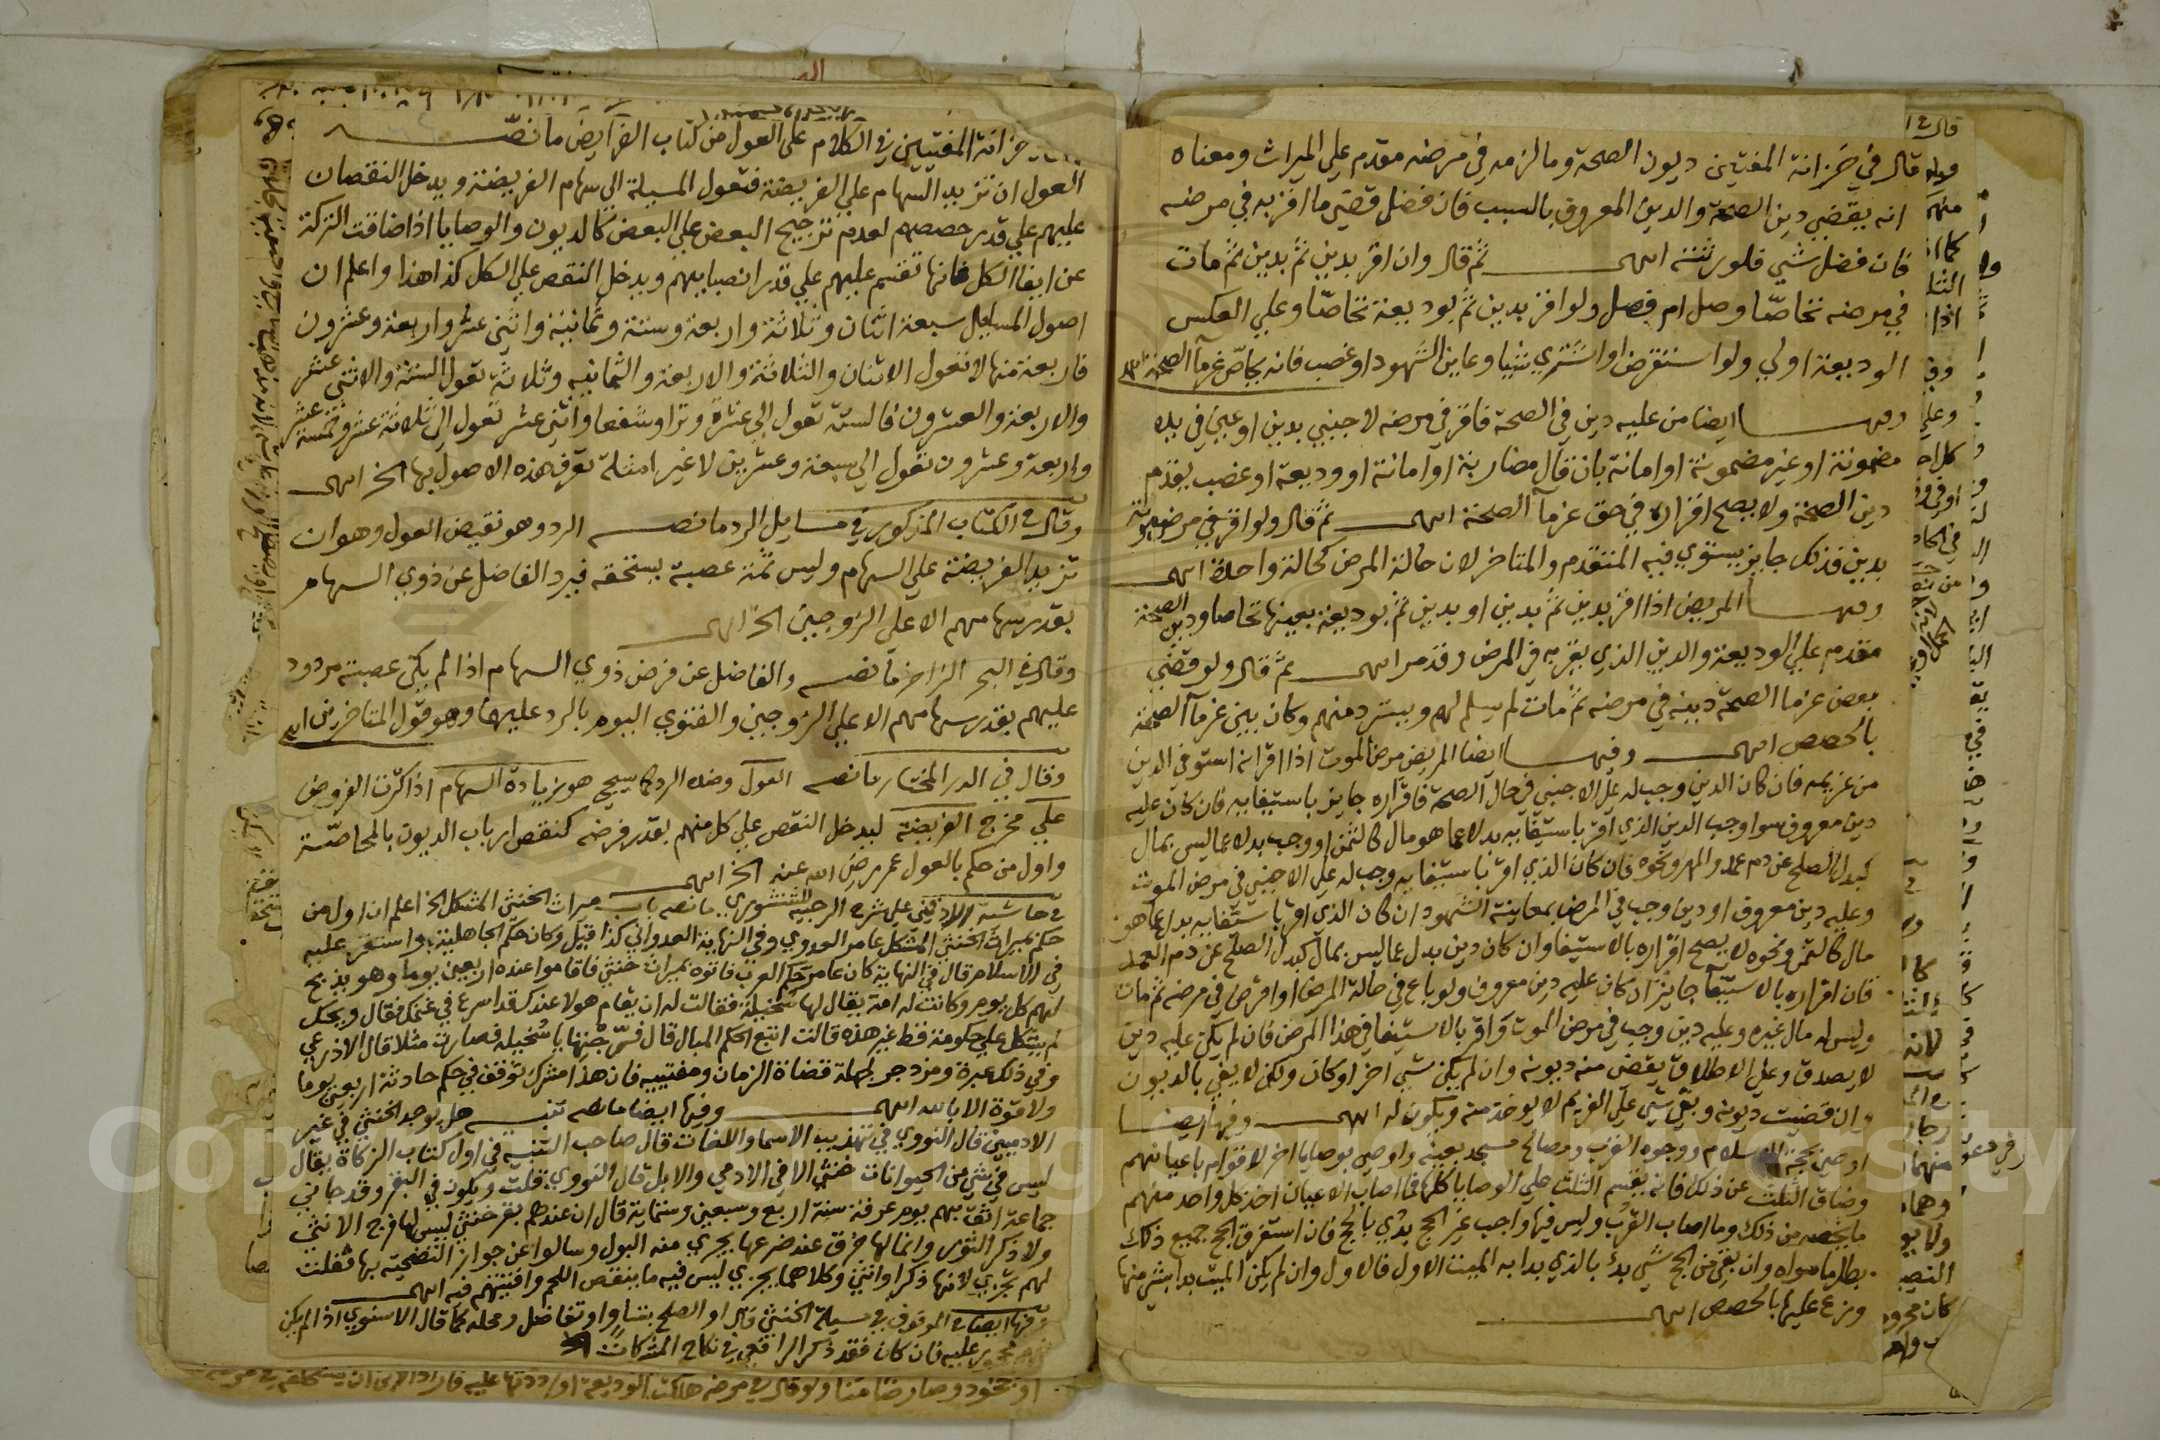 قال في خزانة المفتين ديون الصحة وما لزمه في مرضه مقدم علي الميراث ومعناه
انه يقضي دين الصحة والدين المعروف بالسبب فان فضل قضي ما اقر به في مرضه
فان فضل شي فلورثته انتهى ثم قال وان اقر بدين ثم بدين ثم مات
في مرضه تحاصا وصل ام فصل ولو اقر بدين ثم بوديعة تحاصا وعلي العكس
الوديعة اولي ولو استقرض او اشتري شيا وعاين الشهود او غصب فانه يحاص غرمآ الصحة
وفيها ايضا من عليه دين في الصحة فاقر في مرضه لاجنبي بدين او عين في يده
مضمونة او غير مضمونة او امانة بان قال مضاربة او امانة او وديعة او غصب يقدم
دين الصحة ولا يصح اقراره في حق غرمآ الصحة انتهى ثم قال ولو اقر في مرض موته
بدين فذلك جايز يستوي فيه المتقدم والمتاخر لان حالة المرض كحالة واحدة انتهى
وفيها المريض اذا اقر بدين ثم بدين او بدين ثم بوديعة بعينها تحاصا ودين الصحة
مقدم علي الوديعة والدين الذي يقر به في المرض وقد مر انتهى ثم قال ولو قضي
بعض غرما الصحة دينه في مرضه ثم مات لم يسلم لهم ويسترد منهم وكان بين غرمآ الصحة
بالحصص انتهى وفيها ايضا المريض مرض الموت اذا اقر انه استوفي الدين
من غريمه فان كان الدين وجب له علي الاجنبي في حال الصحة فاقراره جايز باستيفايه فان كان عليه
دين معروف سوا وجب الدين الذي اقر باستيفايه بدلا عما هو مال كالثمن او وجب بدلا عما ليس بمال
كبدل الصلح عن دم عمد والمهر ونحوه فان كان الذي اقر باستيفايه وجب له علي الاجنبي في مرض الموت
وعليه دين معروف او دين وجب في المرض بمعاينة الشهود ان كان الذي اقر باستيفايه بدل عما هو
مال كالثمن ونحوه لا يصح اقراره بالاستيفا وان كان دين بدل عما ليس بمال كبدل الصلح عن دم العمد
فان اقراره بالاستيفا جايز ان كان عليه دين معروف ولو باع في حالة المرض او اقرض في مرضه ثم مات
وليس له مال غيره وعليه دين وجب في مرض الموت واقر بالاستيفا في هذا المرض فان لم يكن عليه دين
لا يصدق وعلي الاطلاق يقضي منه ديونه وان لم يكن شي اخر او كان ولكن لا يفي بالديون
وان قضيت ديونه وبقي شي علي الغريم لا يوخذ منه ويكون له انتهى وفيها ايضا
اوصي بحجة الاسلام ووجوه القرب ومصالح مسجد بعينه واوصي بوصايا اخر لاقوام باعيانهم
وضاق الثلث عن ذلك فانه يقسم الثلث علي الوصايا كلها فما اصاب الاعيان اخذ كل واحد منهم
ما يخصه من ذلك وما اصاب القرب وليس فيها واجب غير الحج بدي بالحج فان استغرق الحج جميع ذلك
بطل ما سواه وان بقي من الحج شي بدئ بالذي بدا به الميت الاول فالاول وان لم يكن الميت بدا بشي منها
وزع عليها بالحصص انتهى
خزانة المفتيين في الكلام علي العول من كتاب الفرآيض ما نصه
العول ان تزيد السهام علي الفريضة فتعول المسيلة الي سهام الفريضة ويدخل النقصان
عليهم علي قدر حصصهم لعدم ترجيح البعض علي البعض كالديون والوصايا اذا ضاقت التركة
عن ايفا الكل فانها تقسم عليهم علي قدر انصبايهم ويدخل النقص علي الكل كذا هذا واعلم ان
اصول المسايل سبعة اثنان وثلاثة واربعة وستة وثمانية واثني عشر واربعة وعشرون
فاربعة منها لا تعول الاثنان والثلاثة والاربعة والثمانيه وثلاثة تعول الستة والاثني عشر
والاربعة والعشرون فالستة تعول الي عشرة وترا وشفعا واثني عشر تعول الي ثلاثة عشر وخمسة عشر
واربعة وعشرون تعول الي سبعة وعشرين لا غير امثلة تعرف هذه الاصول بها الخ انتهى
وقال في الكتاب المذكور في مسايل الرد ما نصه الرد وهو نقيض العول وهو ان
تزيد الفريضة علي السهام وليس ثمة عصبة يستحقه فيرد الفاضل عن ذوي السهام
بقدر سهامهم الا علي الزوجين الخ انتهى
وقال في البحر الزاخر ما نصه والفاضل عن فرض ذوي السهام اذا لم يكن عصبة مردود
عليهم بقدر سهامهم الا علي الزوجين والفتوي اليوم بالرد عليهما وهو قول المتاخرين انتهى
وقال في الدر المختار ما نصه العول وضده الرد كما سيجي هو زيادة السهام اذا كثرت الفروض
علي مخرج الفريضة ليدخل النقص علي كل منهم بقدر فرضه كنقص ارباب الديون بالمحاصة
واول من حكم بالعول عمر رضي الله عنه الخ انتهى
في حاشية الادفيني علي شرح الرحبية للشنشوري ما نصه باب ميراث الخنثي المشكل الخ اعلم ان اول من
حكم بميراث الخنثي المشكل عامر العدوي وفي النهاية العدواني كذا قيل وكان حكم الجاهلية واستقر عليه
في الاسلام قال في النهاية كان عامر حكم العرب فاتوه بميراث خنثي فاقاموا عنده اربعين يوما وهو يذبح
لهم كل يوم وكانت له امة يقال لها سخيلة فقالت له ان مقام هولا عندك قد اسرع في غنمك فقال ويحك
لم يشكل علي حكومة قط غير هذه قالت اتبع الحكم المبال قال فرجتها يا سخيلة فصارت مثلا قال الاذرعي
وفي ذلك عبرة ومزدجر لجهلة قضاة الزمان ومفتييه فان هذا مشرك توقف في حكم حادثة اربعين يوما
ولا قوة الا بالله انتهى وفيها ايضا ما نصه تنبيه هل يوجد الخنثي في غير
الادميين قال النووي في تهذيب الاسما واللغات قال صاحب التنبيه في اول كتاب الزكاة يقال
ليس في شي من الحيوانات خنثي الا في الادمي والابل قال النووي قلت ويكون في البقر وقد جاني
جماعة اثق بهم يوم عرفة سنة اربع وسبعين وستماية قال ان عندهم بقر خنثي ليس لها فرج الانثي
ولا ذكر الثور وانما لها خرق عند ضرعها يجري منه البول وسالوا عن جواز التضحية بها فقلت
لهم تجزي لانها ذكر او انثي وكلاهما يجزي ليس فيه ما ينقص اللحم وافتيتهم فيه انتهى
وفيها ايضا الموقوف في مسيلة الخنثي قال او الصلح بتساو او تفاضل ومحله كما قال الاسنوي اذا لم يكن
محجور عليه فان كان فقد ذكر الرافعي في نكاح المشركات